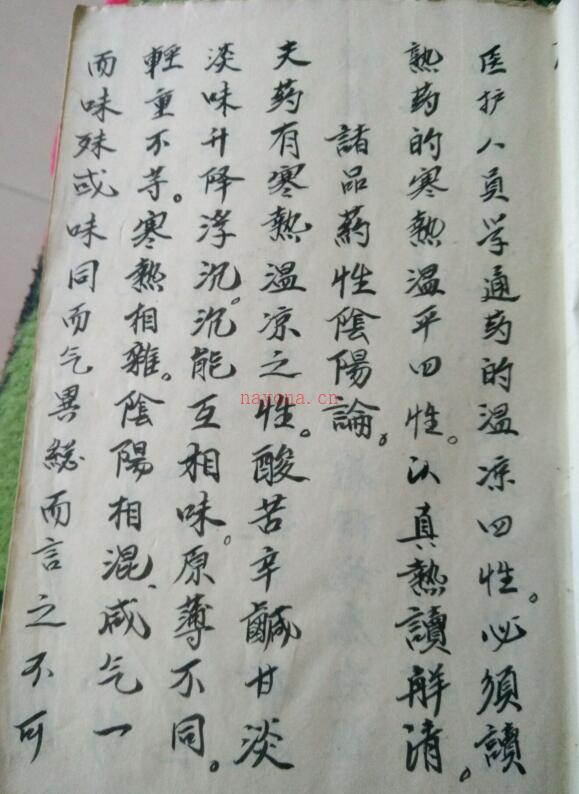 医护人員学通药的温凉四性。必須讀
熟药的寒熱温平四性。认真熟讀解清。
諸品药性陰陽論。
夫药有寒熱温凉之性。酸苦辛鹹甘淡
淡味升降浮沉。沉能互相味。原薄不同。
輕重不等。寒熱相雜。陰陽相混、咸气一
而味殊或味同而气異総而言之不可
nayona.cn